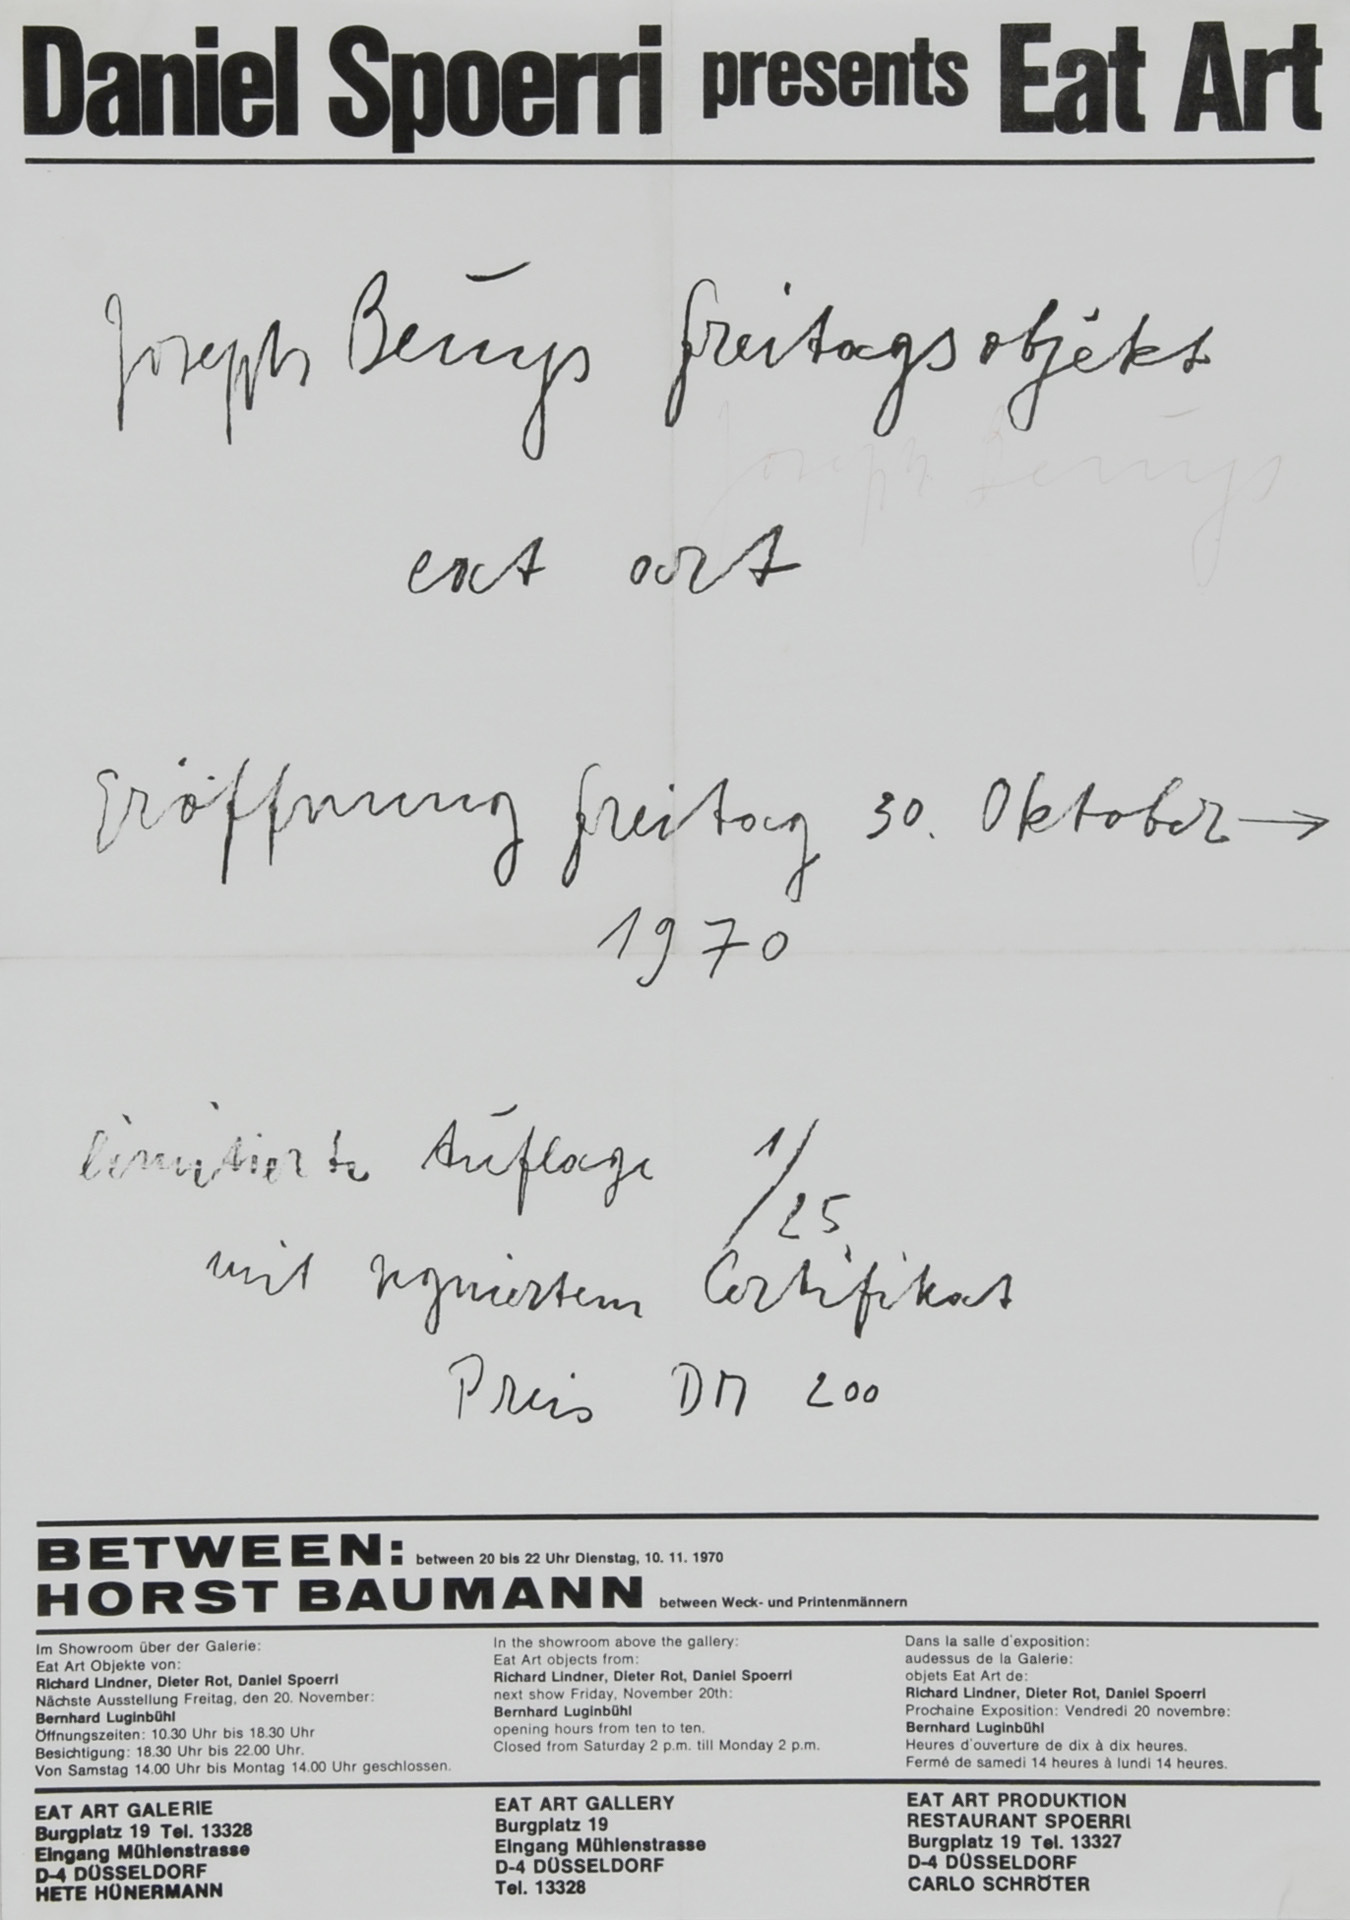 Daniel Spoerri presents Eat Art
Joseph Beuys Freitagsobjekt
Joseph Beuys
eat art
Eröffnung Freitag 30. Oktober →
1970
limitierte Auflage 1/25
mit signiertem Certifikat
Preis DM 200
BETWEEN: between 20 bis 22 Uhr Dienstag, 10. 11. 1970
HORST BAUMANN between Weck- und Printenmännern
Im Showroom über der Galerie:
Eat Art Objekte von:
Richard Lindner, Dieter Rot, Daniel Spoerri
Nächste Ausstellung Freitag, den 20. November:
Bernhard Luginbühl
Öffnungszeiten: 10.30 Uhr bis 18.30 Uhr
Besichtigung: 18.30 Uhr bis 22.00 Uhr.
Von Samstag 14.00 Uhr bis Montag 14.00 Uhr geschlossen.
In the showroom above the gallery:
Eat Art objects from:
Richard Lindner, Dieter Rot, Daniel Spoerri
next show Friday, November 20th:
Bernhard Luginbühl
opening hours from ten to ten.
Closed from Saturday 2 p.m. till Monday 2 p.m.
Dans la salle d'exposition:
audessus de la Galerie:
objets Eat Art de:
Richard Lindner, Dieter Rot, Daniel Spoerri
Prochaine Exposition: Vendredi 20 novembre:
Bernhard Luginbühl
Heures d'ouverture de dix à dix heures.
Fermé de samedi 14 heures à lundi 14 heures.
EAT ART GALERIE
Burgplatz 19 Tel. 13328
Eingang Mühlenstrasse
D-4 DÜSSELDORF
HETE HÜNERMANN
EAT ART GALLERY
Burgplatz 19
Eingang Mühlenstrasse
D-4 DÜSSELDORF
Tel. 13328
EAT ART PRODUKTION
RESTAURANT SPOERRI
Burgplatz 19 Tel. 13327
D-4 DÜSSELDORF
CARLO SCHRÖTER